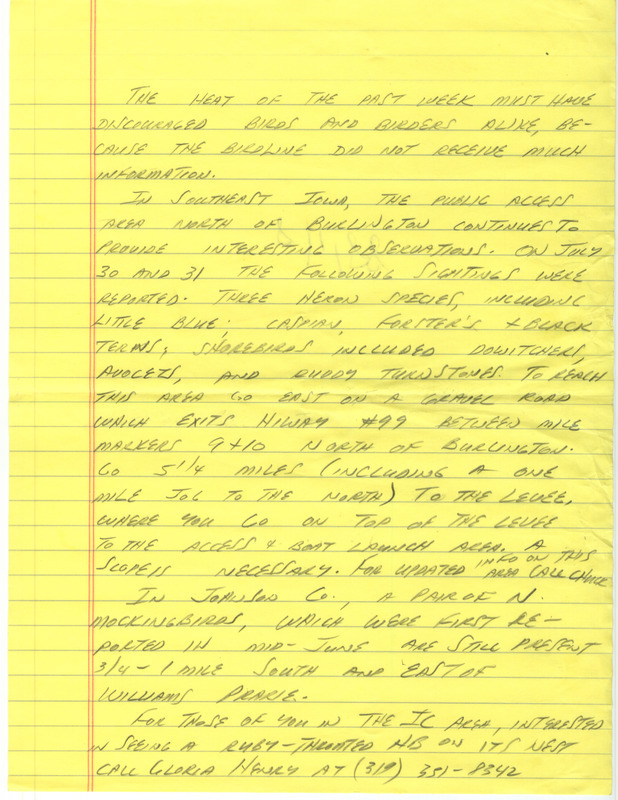 THE HEAT OF THE PAST WEEK MUST HAVE
DISCOURAGED BIRDS AND BIRDERS ALIKE, BE-
CAUSE THE BIRDLINE DID NOT RECEIVE MUCH
INFORMATION.
IN SOUTHEAST IOWA, THE PUBLIC ACCESS
AREA NORTH OF BURLINGTON CONTINUES TO
PROVIDE INTERESTING OBSERVATIONS. ON JULY
30 AND 31 THE FOLLOWING SIGHTINGS WERE
REPORTED. THREE HERON SPECIES, INCLUDING
LITTLE BLUE; CASPIAN, FORSTER'S + BLACK
TERNS; SHOREBIRDS INCLUDED DOWITCHERS,
AVOCETS, AND RUDDY TURNSTONES. TO REACH
THIS AREA GO EAST ON A GRAVEL ROAD
WHICH EXITS HIWAY #99 BETWEEN MILE
MARKERS 9+10 NORTH OF BURLINGTON.
GO 5 1/4 MILES (INCLUDING A ONE
MILE JOG TO THE NORTH) TO THE LEVEE,
WHERE YOU GO ON TOP OF THE LEVEE
TO THE ACCESS & BOAT LAUNCH AREA. A
SCOPE IS NECESSARY. FOR UPDATED INFO ON THIS AREA CALL CHUCK
IN JOHNSON CO., A PAIR OF N.
MOCKINGBIRDS, WHICH WERE FIRST RE-
PORTED IN MID-JUNE ARE STILL PRESENT
3/4 - 1 MILE SOUTH AND EAST OF
WILLIAMS PRARIE.
FOR THOSE OF YOU IN THE IC AREA, INTERESTED
IN SEEING A RUBY-THROTED HB ON ITS NEST
CALL GLORIA HENRY AT (319) 351-8342